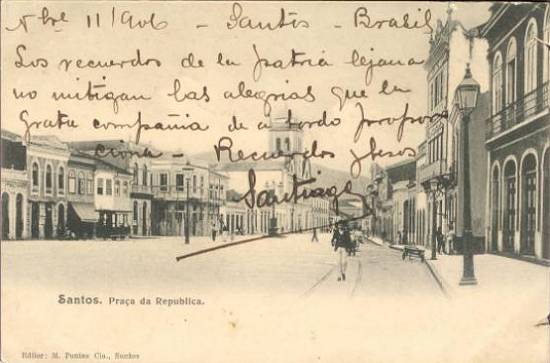 Nbre 11/906 - Santos - Brasil
Los recuerdos de la patria lejana
no mitigan las alegrias que la
grata compañia de a bordo propor
ciona - Recuerdos y besos
Santiago
Santos. Praça da Republica.
Editor: M. Pontes Cia., Santos